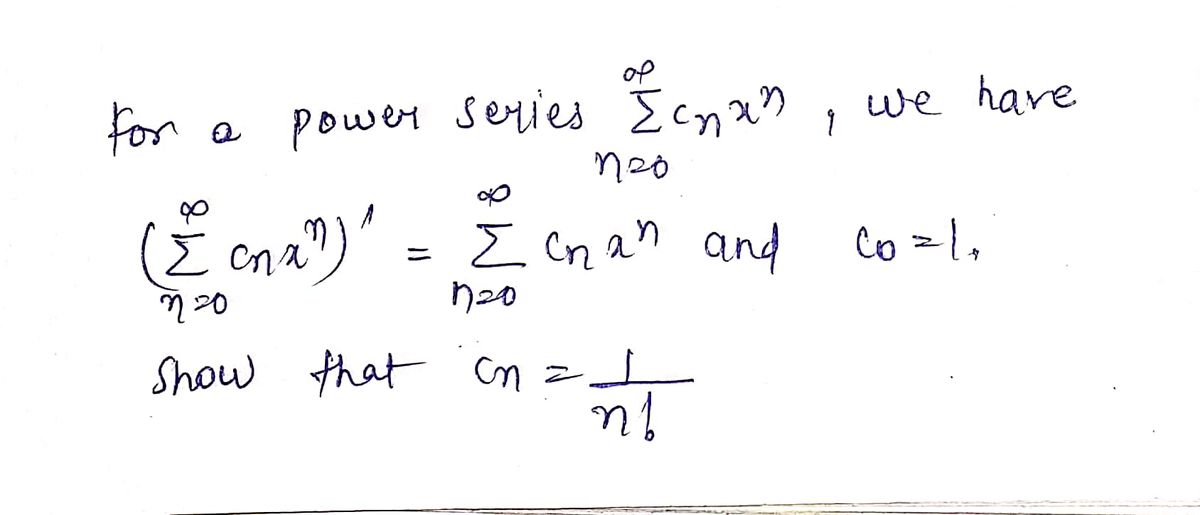 For a power series $\sum_{n=0}^{\infty} c_n x^n$, we have
$(\sum_{n=0}^{\infty} c_n x^n)' = \sum_{n=0}^{\infty} c_n x^n$ and $c_0 = 1$.
Show that $c_n = \frac{1}{n!}$